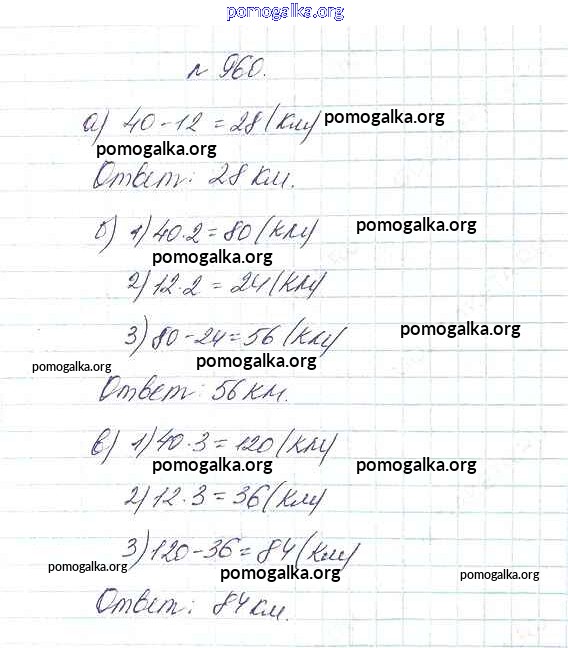 pomogalka.org
№ 960.
а) 40 - 12 = 28 (км) pomogalka.org
pomogalka.org
Ответ: 28 км.
б) 1) 40 · 2 = 80 (км) pomogalka.org
pomogalka.org
2) 12 · 2 = 24 (км)
3) 80 - 24 = 56 (км) pomogalka.org
pomogalka.org pomogalka.org
Ответ: 56 км.
в) 1) 40 · 3 = 120 (км)
pomogalka.org pomogalka.org
2) 12 · 3 = 36 (км)
3) 120 - 36 = 84 (км)
pomogalka.org pomogalka.org pomogalka.org
Ответ: 84 км.